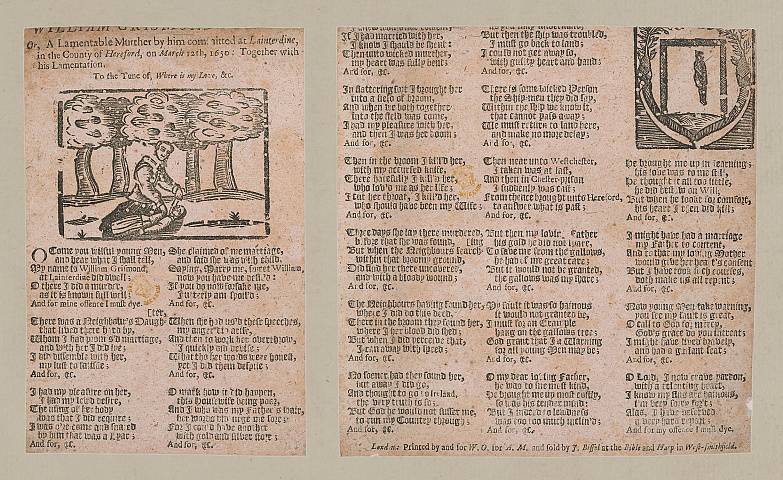 WILLIAM GRISMOND
Or, A Lamentable Murther by him committed at Lainterdine,
in the County of Hereford, on March 12th, 1650: Together with
his Lamentation.
To the Tune of, Where is my Love, &c.
O Come you wilful young Men,
and hear what I shall tell,
My name is William Grismond,
at Lainterdine did dwell:
O there I did a murder,
as it is known full well,
And for mine offence I must dye.
There was a Neighbour's Daughter
that lived there hard by,
Whom I had promis'd marriage,
and with her I did lye;
I did dissemble with her,
my lust to satisfie;
And for, &c.
I had my pleasure on her,
I had my lewd desire,
The using of her body
was that I did require;
I was o're-come and snared
by him that was a Lyar;
And for, &c.
She claimed of me marriage,
and said she was with child,
Saying, Marry me, sweet William,
now you have me defil'd:
If you do now forsake me,
I utterly am spoil'd;
And for, &c.
When she had us'd these speeches,
my anger did arise,
And then to work her overthrow,
I quickly did devise;
What tho her words were honest,
yet I did them despise;
And for, &c.
O mark how it did happen,
this housewife being poor,
And I who was my Father's hair,
her words did urge me sore;
For I could have another
with gold and silver store;
And for, &c.
If I had married with her,
I know I should be shent:
Then unto wicked murther,
my heart was fully bent:
And for, &c.
In flattering sort I brought her
into a field of broom,
And when we both together
into the field was come,
I had my pleasure with her,
and then I was her doom;
And for, &c.
Then in the broom I kill'd her,
with my accursed knife,
There hatefully I kill'd her,
who lov'd me as her life;
I cut her throat, I kill'd her,
who should have been my Wife;
And for, &c.
Three days she lay there murdered,
before that she was found,
But when the Neighbours searched
within that broomy ground,
Did find her there uncovered,
and with a bloody wound;
And for, &c.
The Neighbours having found her,
where I did do this deed,
There in the broom they found her,
where I her blood did shed;
But when I did perceive that,
I ran away with speed;
And for, &c.
No sooner had they found her,
but away I did go,
And thought to go to Ireland,
the very truth is so;
But God he would not suffer me,
to run my Country through;
And for, &c.
But then the ship was troubled,
I must go back to land;
I could not get away so,
with guilty heart and hand;
And for, &c.
There is some wicked Person
the Ship-men they did say,
Within the ship we know it,
that cannot pass away;
We must return to land here,
and make no more delay;
And for, &c.
Then near unto Westchester,
I taken was at last,
And then in Chester-prison
I suddenly was cast;
From thence brought unto Hereford,
to answer what is past;
And for, &c.
But then my loving Father
his gold he did not spare,
To save me from the gallows,
he had of me great care;
But it would not be granted,
the gallows was my share;
And for, &c.
My fault it was so hainous
it would not granted be,
I must for an Example
hang on the gallows tree;
God grant that I a Warning
for all young Men may be;
And for, &c.
O my dear loving Father,
he was to me most kind,
He brought me up most costly,
so was his tender mind;
But I indeed to lewdness
was too too much inclin'd;
And for, &c.
He brought me up in learning;
his love was to me still,
He thought it all too little,
he did bestow on Will;
But when he lookt for comfort,
his heart I then did kill;
And for, &c.
I might have had a marriage
my Father to content,
And so that my loving Mother
would give her heart's consent
But I have took ill courses,
doth make us all repent;
And for, &c.
Now young Men take warning,
you see my fault is great,
O call to God for mercy,
God's grace do you intreat;
I might have lived bravely,
and had a gallant seat;
And for, &c.
O Lord, I now crave pardon,
with a relenting heart,
I know my sins are hainous,
I'm very sorry for't;
Alas, I have deserved
a very harsh report;
And for my offence I must dye.
London: Printed by and for W. O. for A. M. and sold by J. Bissel at the Bible and Harp in West-smithfield.